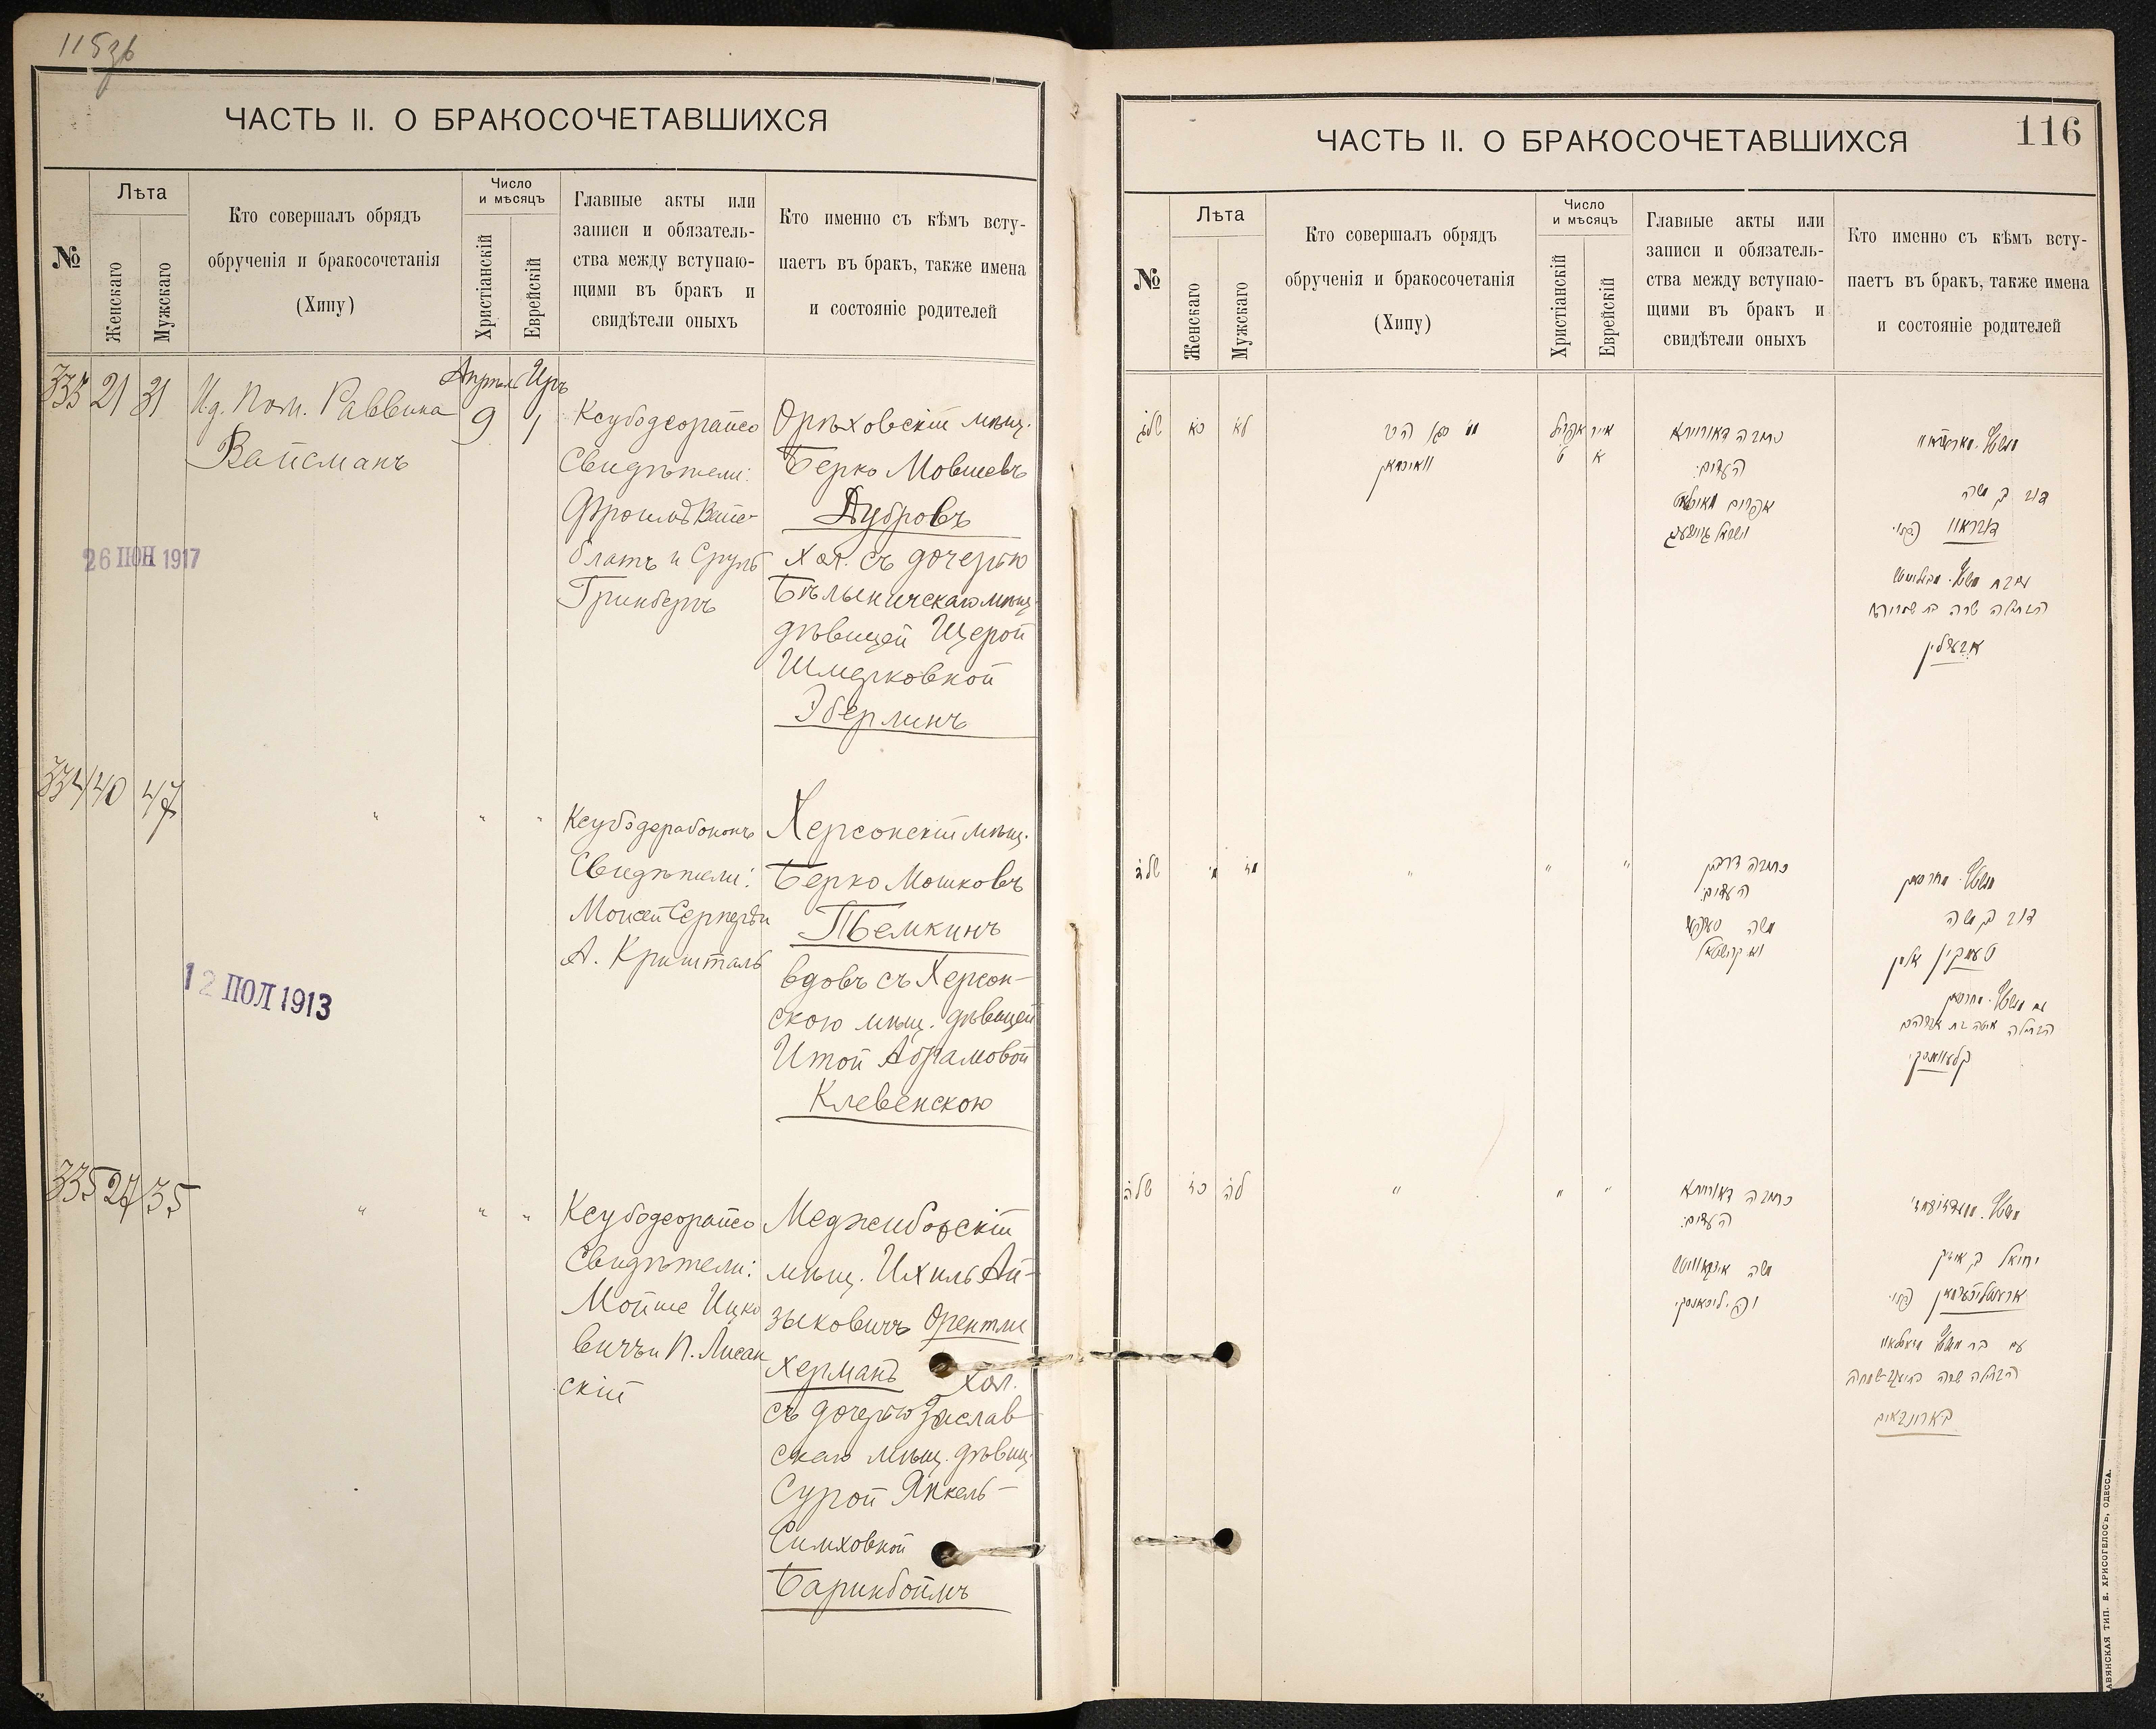 115зв
ЧАСТЬ II. О БРАКОСОЧЕТАВШИХСЯ
№
Лѣта
Женскаго
Мужскаго
Кто совершалъ обрядъ
обрученія и бракосочетанія
(Хипу)
Число
и мѣсяцъ
Христіанскій
Еврейскій
Главные акты или
записи и обязатель-
ства между вступаю-
щими въ бракъ и
свидѣтели оныхъ
Кто именно съ кѣмъ всту-
паетъ въ бракъ, также имена
и состояніе родителей
333 21 31
И.д. Пом. Раввина
Вайсманъ
Апрѣль Иръ
9 1
Ксубодеорайсо
Свидѣтели:
Фроимъ Вайс-
блатъ и Сруль
Гринбергъ
Орѣховскій мѣщ.
Берко Мовшевъ
Дубровъ
хол. съ дочерью
Бѣлыничскаго мѣщ.
дѣвицей Щерой
Шмерковной
Эберлинъ
26 ІЮН 1917
334 40 47
" " "
Ксубодерабононъ
Свидѣтели:
Моисей Серперъ и
А. Кришталь
Херсонскій мѣщ.
Берко Мошковъ
Тьемкинъ
вдовъ съ Херсон-
скою мѣщ. дѣвицей
Итой Абрамовой
Клевенскою
12 ІЮЛ 1913
335 24 35
" " "
Ксубодеорайсо
Свидѣтели:
Мойше Ицко
вичъ и П. Лисан
скій
Меджибожскій
мѣщ. Ихиль Ай-
зыковичъ Орентли
херманъ хол.
съ дочерью Заслав
скаго мѣщ. дѣвиц.
Сурой Янкель-
Симховной
Баринбоймъ
ЧАСТЬ II. О БРАКОСОЧЕТАВШИХСЯ
116
№
Лѣта
Женскаго
Мужскаго
Кто совершалъ обрядъ
обрученія и бракосочетанія
(Хипу)
Число
и мѣсяцъ
Христіанскій
Еврейскій
Главные акты или
записи и обязатель-
ства между вступаю-
щими въ бракъ и
свидѣтели оныхъ
Кто именно съ кѣмъ всту-
паетъ въ бракъ, также имена
и состояніе родителей
שלג כא לא
וואיסמאן
אפריל אייר
ט א
כתובה דאורייתא
העדים:
אפרים
דוב בן משה
שלד מ מז
" " "
כתובה דרבנן
העדים:
משה
דוב בן משה
טעמקין אלמן
שלה כד לה
" " "
כתובה דאורייתא
העדים:
משה איצקאוויטש
יחיאל בן אייזק
הבתולה שרה
בארינבוים
АВЯНСКАЯ ТИП. Е. ХРИСОГЕЛОСЪ, ОДЕССА.